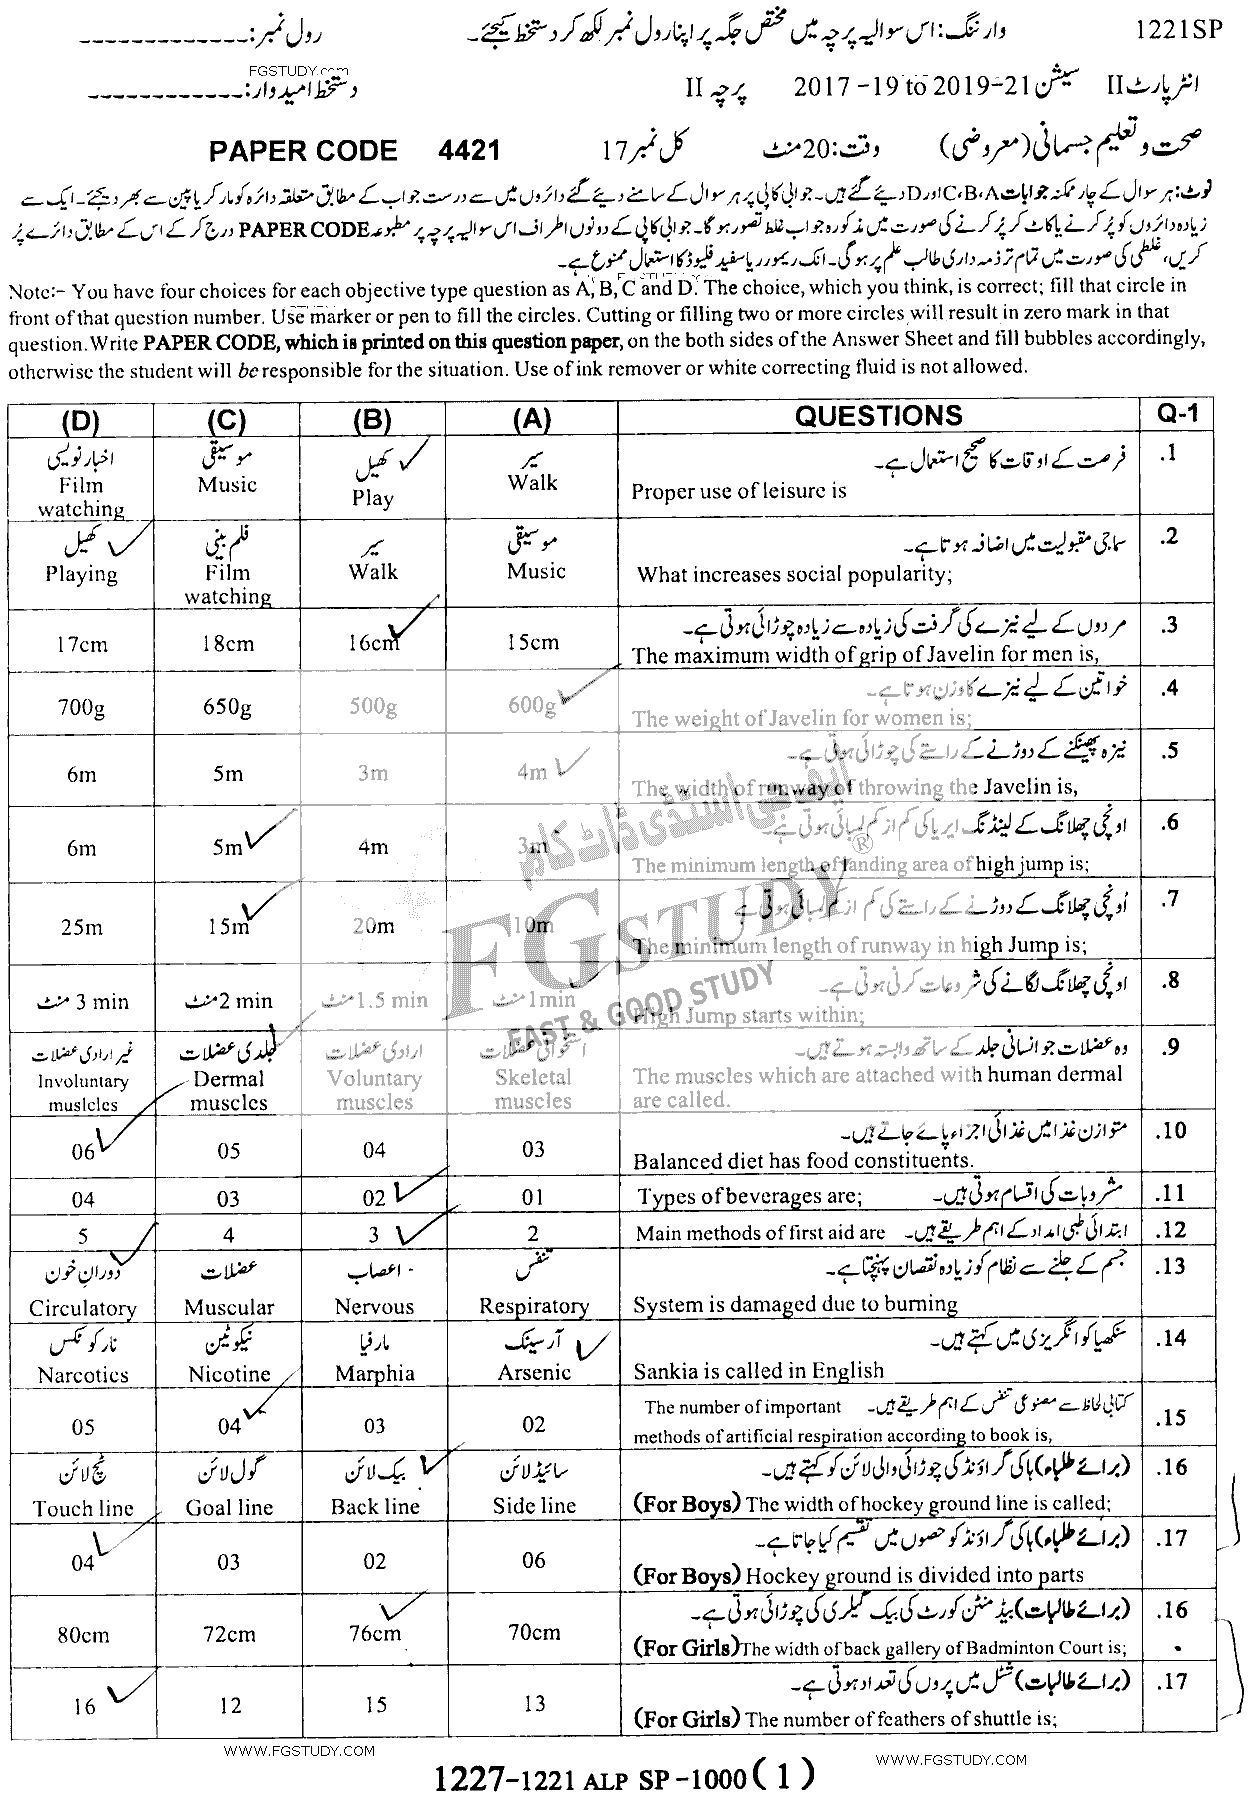 1221SP وارننگ: اس سوالیہ پرچہ میں مختص جگہ پر اپنا رول نمبر لکھ کر دستخط کیجئے۔ رول نمبر: _____________
FGSTUDY.com
انٹر پارٹ II سیشن 2017-19 to 2019-21 پرچہ II دستخط امیدوار: ____________
صحت و تعلیم جسمانی (معروضی) وقت: 20 منٹ کل نمبر 17 PAPER CODE 4421
نوٹ: ہر سوال کے چار ممکنہ جوابات C، B، A اور D دیئے گئے ہیں۔ جوابی کاپی پر ہر سوال کے سامنے دیئے گئے دائروں میں سے درست جواب کے مطابق متعلقہ دائرہ کو مارکر یا پین سے بھر دیجئے۔ ایک سے
زیادہ دائروں کو پُر کرنے یا کاٹ کر پُر کرنے کی صورت میں مذکورہ جواب غلط تصور ہوگا۔ جوابی کاپی کے دونوں اطراف اس سوالیہ پرچہ پر مطبوعہ PAPER CODE درج کر کے اس کے مطابق دائرے پُر
کریں، غلطی کی صورت میں تمام تر ذمہ داری طالب علم پر ہوگی۔ انک ریموور یا سفید فلیوڈ کا استعمال ممنوع ہے۔
FGSTUDY.com
Note:- You have four choices for each objective type question as A, B, C and D. The choice, which you think, is correct; fill that circle in
front of that question number. Use marker or pen to fill the circles. Cutting or filling two or more circles will result in zero mark in that
question. Write PAPER CODE, which is printed on this question paper, on the both sides of the Answer Sheet and fill bubbles accordingly,
otherwise the student will be responsible for the situation. Use of ink remover or white correcting fluid is not allowed.
(D) (C) (B) (A) QUESTIONS Q-1
اخبار نویسی موسیقی کھیل سیر فرصت کے اوقات کا صحیح استعمال ہے۔ .1
Film watching Music Play Walk Proper use of leisure is
کھیل فلم بینی سیر موسیقی سماجی مقبولیت میں اضافہ ہوتا ہے۔ .2
Playing Film watching Walk Music What increases social popularity;
مردوں کے لیے نیزے کی گرفت کی زیادہ سے زیادہ چوڑائی ہوتی ہے۔ .3
17cm 18cm 16cm 15cm The maximum width of grip of Javelin for men is,
خواتین کے لیے نیزے کا وزن ہوتا ہے۔ .4
700g 650g 500g 600g The weight of Javelin for women is;
نیزہ پھینکنے کے دوڑنے کے راستے کی چوڑائی ہوتی ہے۔ .5
6m 5m 3m 4m The width of runway of throwing the Javelin is,
اونچی چھلانگ کے لینڈنگ ایریا کی کم از کم لمبائی ہوتی ہے۔ .6
6m 5m 4m 3m The minimum length of landing area of high jump is;
اُونچی چھلانگ کے دوڑنے کے راستے کی کم از کم لمبائی ہوتی ہے۔ .7
25m 15m 20m 10m The minimum length of runway in high Jump is;
اونچی چھلانگ لگانے کی شروعات کرنی ہوتی ہے۔ .8
3 min منٹ 2 min منٹ 1.5 min منٹ 1min منٹ High Jump starts within;
ایف جی اسٹڈی ڈاٹ کام
®
FG STUDY
FAST & GOOD STUDY
غیر ارادی عضلات جلدی عضلات ارادی عضلات استخوانی عضلات وہ عضلات جو انسانی جلد کے ساتھ وابستہ ہوتے ہیں۔ .9
Involuntary muslcles Dermal muscles Voluntary muscles Skeletal muscles The muscles which are attached with human dermal
are called.
متوازن غذا میں غذائی اجزاء پائے جاتے ہیں۔ .10
06 05 04 03 Balanced diet has food constituents.
04 03 02 01 Types of beverages are; مشروبات کی اقسام ہوتی ہیں۔ .11
5 4 3 2 Main methods of first aid are ابتدائی طبی امداد کے اہم طریقے ہیں۔ .12
دوران خون عضلات اعصاب تنفس جسم کے جلنے سے نظام کو زیادہ نقصان پہنچتا ہے۔ .13
Circulatory Muscular Nervous Respiratory System is damaged due to burning
نارکوٹکس نیکوٹین مارفیا آرسینک سنکھیا کو انگریزی میں کہتے ہیں۔ .14
Narcotics Nicotine Marphia Arsenic Sankia is called in English
The number of important کتابی لحاظ سے مصنوعی تنفس کے اہم طریقے ہیں۔ .15
05 04 03 02 methods of artificial respiration according to book is,
ٹچ لائن گول لائن بیک لائن سائیڈ لائن (برائے طلباء) ہاکی گراؤنڈ کی چوڑائی والی لائن کو کہتے ہیں۔ .16
Touch line Goal line Back line Side line (For Boys) The width of hockey ground line is called;
(برائے طلباء) ہاکی گراؤنڈ کو حصوں میں تقسیم کیا جاتا ہے۔ .17
04 03 02 06 (For Boys) Hockey ground is divided into parts
(برائے طالبات) بیڈمنٹن کورٹ کی بیک گیلری کی چوڑائی ہوتی ہے۔ .16
80cm 72cm 76cm 70cm (For Girls) The width of back gallery of Badminton Court is;
(برائے طالبات) شٹل میں پروں کی تعداد ہوتی ہے۔ .17
16 12 15 13 (For Girls) The number of feathers of shuttle is;
WWW.FGSTUDY.COM WWW.FGSTUDY.COM
1227-1221 ALP SP -1000 (1)